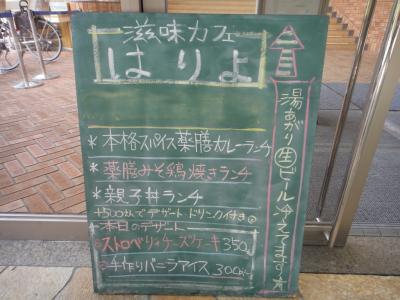 滋味カフェ
はりよ
＊本格スパイス薬膳カレーランチ
＊薬膳みそ鶏焼きランチ
＊親子丼ランチ
+500えんでデザート ドリンク付き
＊本日のデザート
ストロベリーチーズケーキ 350
手作りバニラアイス 300
湯あがり生ビール冷えてます